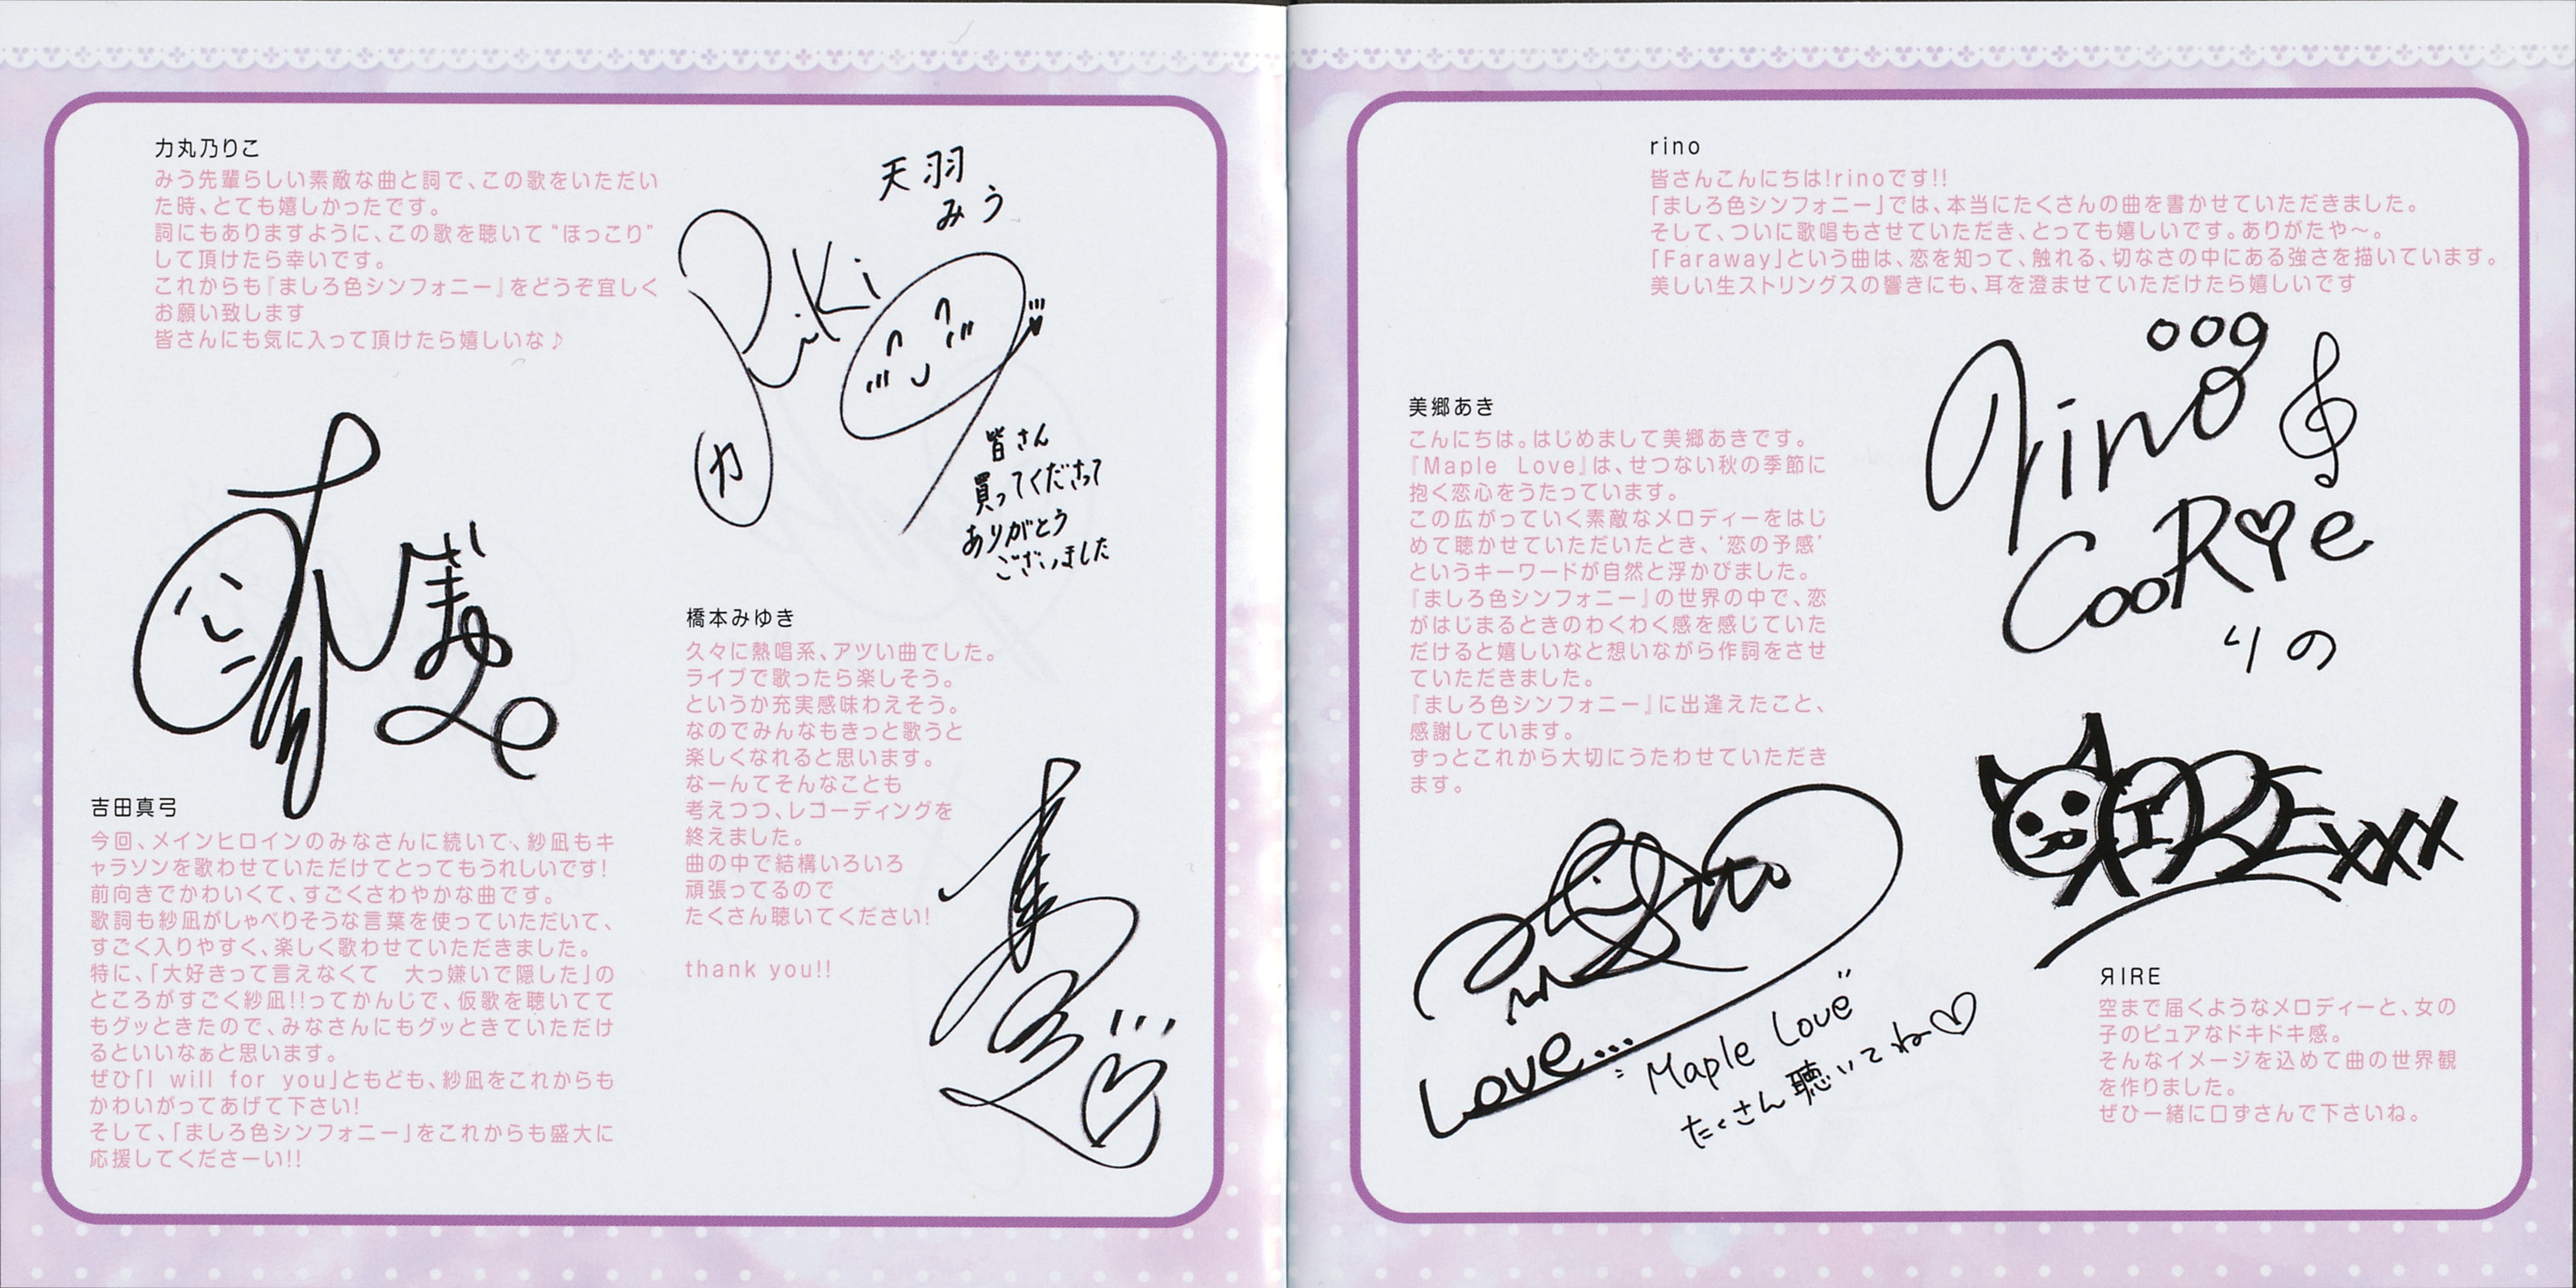 力丸乃りこ
みう先輩らしい素敵な曲と詞で、この歌をいただい
た時、とても嬉しかったです。
詞にもありますように、この歌を聴いて“ほっこり”
して頂けたら幸いです。
これからも『ましろ色シンフォニー』をどうぞ宜しく
お願い致します
皆さんにも気に入って頂けたら嬉しいな♪
天羽
みう
Riki
力
皆さん
買ってくださって
ありがとう
ございました
吉田真弓
今回、メインヒロインのみなさんに続いて、紗凪もキ
ャラソンを歌わせていただけてとってもうれしいです!
前向きでかわいくて、すごくさわやかな曲です。
歌詞も紗凪がしゃべりそうな言葉を使っていただいて、
すごく入りやすく、楽しく歌わせていただきました。
特に、「大好きって言えなくて　大っ嫌いで隠した」の
ところがすごく紗凪!!ってかんじで、仮歌を聴いてて
もグッときたので、みなさんにもグッときていただけ
るといいなぁと思います。
ぜひ「I will for you」ともども、紗凪をこれからも
かわいがってあげて下さい!
そして、「ましろ色シンフォニー」をこれからも盛大に
応援してくださーい!!
橋本みゆき
久々に熱唱系、アツい曲でした。
ライブで歌ったら楽しそう。
というか充実感味わえそう。
なのでみんなもきっと歌うと
楽しくなれると思います。
なーんてそんなことも
考えつつ、レコーディングを
終えました。
曲の中で結構いろいろ
頑張ってるので
たくさん聴いてください!
thank you!!
rino
皆さんこんにちは!rinoです!!
「ましろ色シンフォニー」では、本当にたくさんの曲を書かせていただきました。
そして、ついに歌唱もさせていただき、とっても嬉しいです。ありがたや～。
「Faraway」という曲は、恋を知って、触れる、切なさの中にある強さを描いています。
美しい生ストリングスの響きにも、耳を澄ませていただけたら嬉しいです
rino
CooRie
りの
美郷あき
こんにちは。はじめまして美郷あきです。
『Maple Love』は、せつない秋の季節に
抱く恋心をうたっています。
この広がっていく素敵なメロディーをはじ
めて聴かせていただいたとき、‘恋の予感’
というキーワードが自然と浮かびました。
『ましろ色シンフォニー』の世界の中で、恋
がはじまるときのわくわく感を感じていた
だけると嬉しいなと想いながら作詞をさせ
ていただきました。
『ましろ色シンフォニー』に出逢えたこと、
感謝しています。
ずっとこれから大切にうたわせていただき
ます。
Love...
"Maple Love"
たくさん聴いてね♡
RIRE xxx
ЯIRE
空まで届くようなメロディーと、女の
子のピュアなドキドキ感。
そんなイメージを込めて曲の世界観
を作りました。
ぜひ一緒に口ずさんで下さいね。